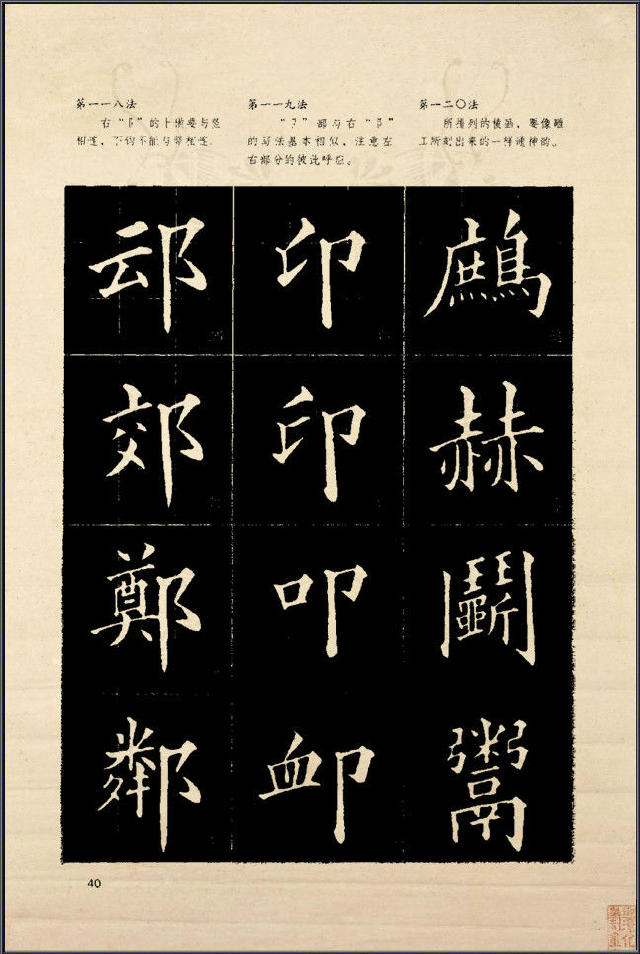 第一一八法
右“阝”的上横要与竖
相连，下钩不能与竖相连。
第一一九法
“卩”部与右“阝”
的写法基本相似，注意左
右部分的彼此呼应。
第一二〇法
所排列的横画，要像雕
工所刻出来的一样遒神韵。
邧 印 鷓
郊 印 赫
鄭 叩 鬭
鄰 卹 鬻
40